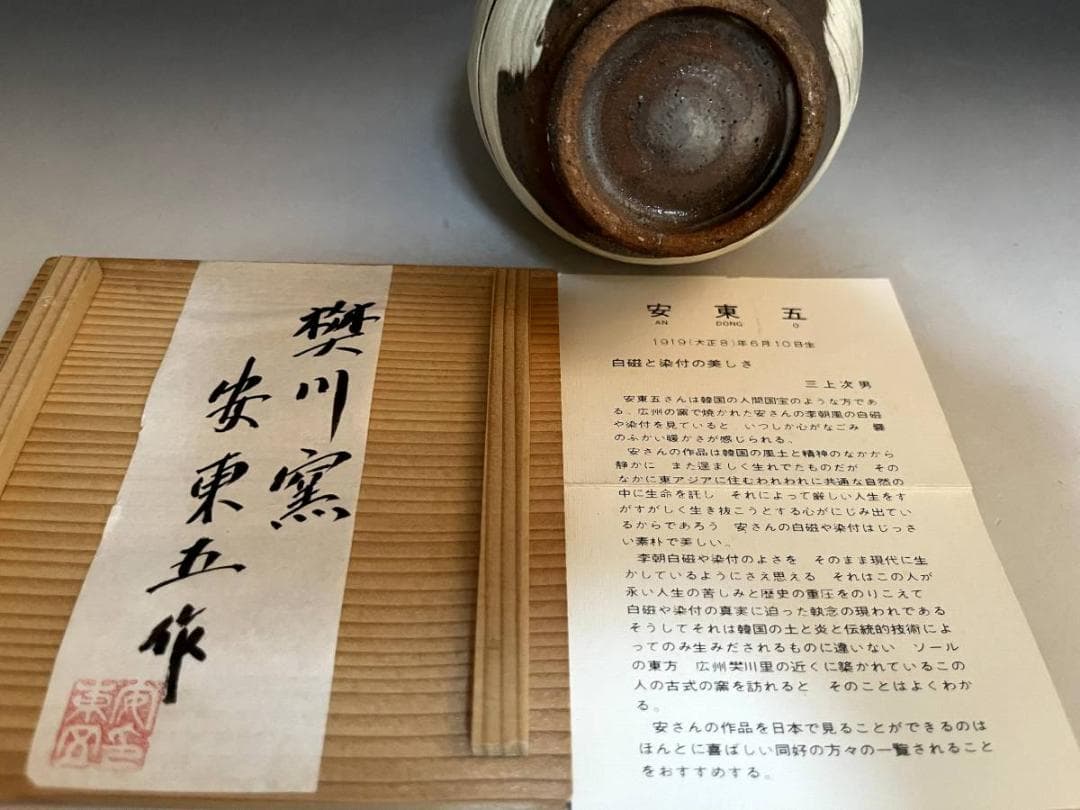 樊川窯
安東五作
安東五
AN DONG O
1919(大正8)年6月10日生
白磁と染付の美しさ
三上次男
安東五さんは韓国の人間国宝のような方であ
る。広州の窯で焼かれた安さんの李朝風の白磁
や染付を見ていると いつしか心がなごみ
のふかい暖かさが感じられる。
安さんの作品は韓国の風土と精神のなかから
静かに また逞ましく生れでたものだが その
なかに東アジアに住むわれわれに共通な自然の
中に生命を託し それによって厳しい人生をす
がすがしく生き抜こうとする心がにじみ出てい
るからであろう 安さんの白磁や染付はじっさ
い素朴で美しい。
李朝白磁や染付のよさを そのまま現代に生
かしているようにさえ思える それはこの人が
永い人生の苦しみと歴史の重圧をのりこえて
白磁や染付の真実に迫った執念の現われである
そうしてそれは韓国の土と炎と伝統的技術によ
ってのみ生みだされるものに違いない ソール
の東方 広州樊川里の近くに築かれているこの
人の古式の窯を訪れると そのことはよくわか
る。
安さんの作品を日本で見ることができるのは
ほんとに喜ばしい同好の方々の一覧されること
をおすすめする。